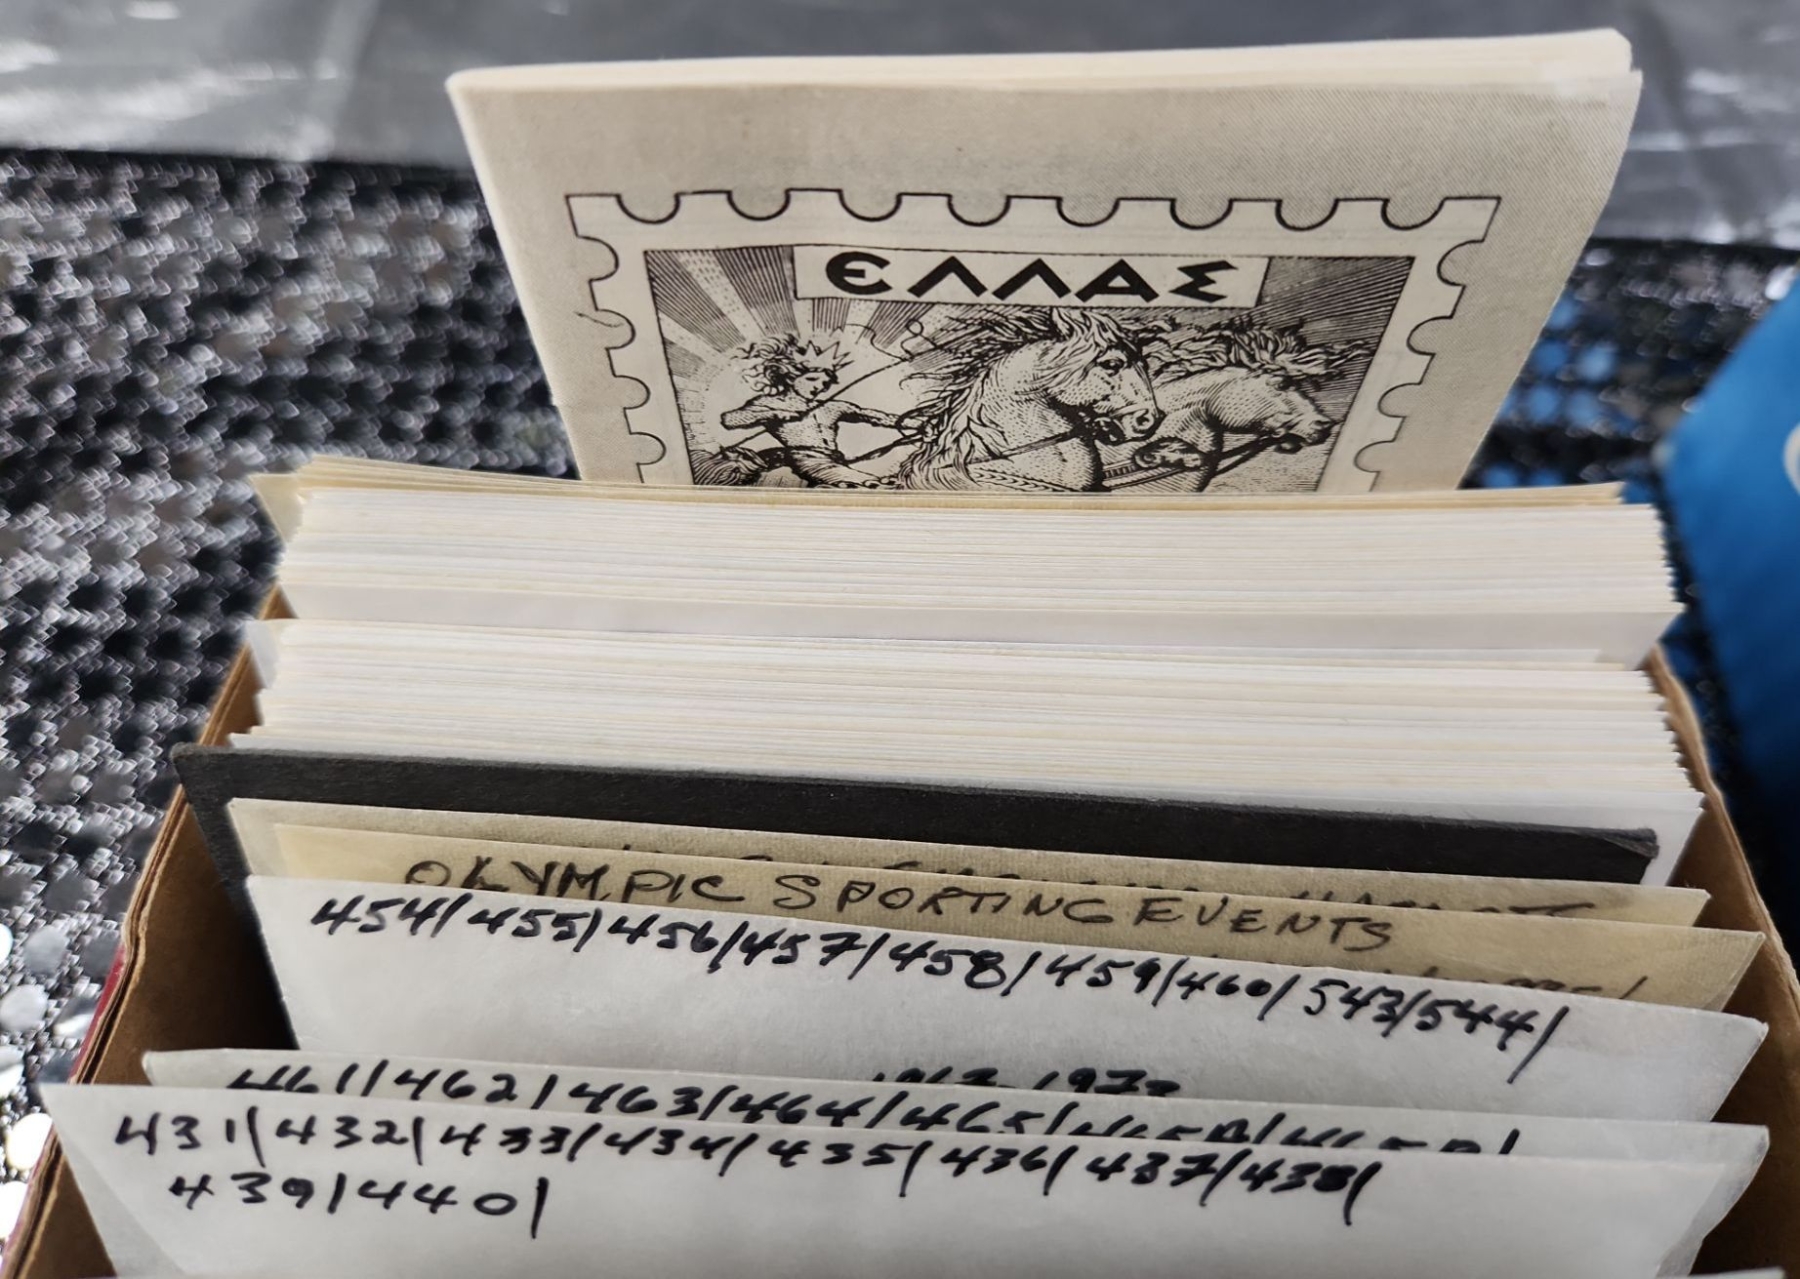 ΕΛΛΑΣ
OLYMPIC SPORTING EVENTS
454/455/456/457/458/459/460/543/544/
461/462/463/464/465/
431/432/433/434/435/436/437/438/
439/440/